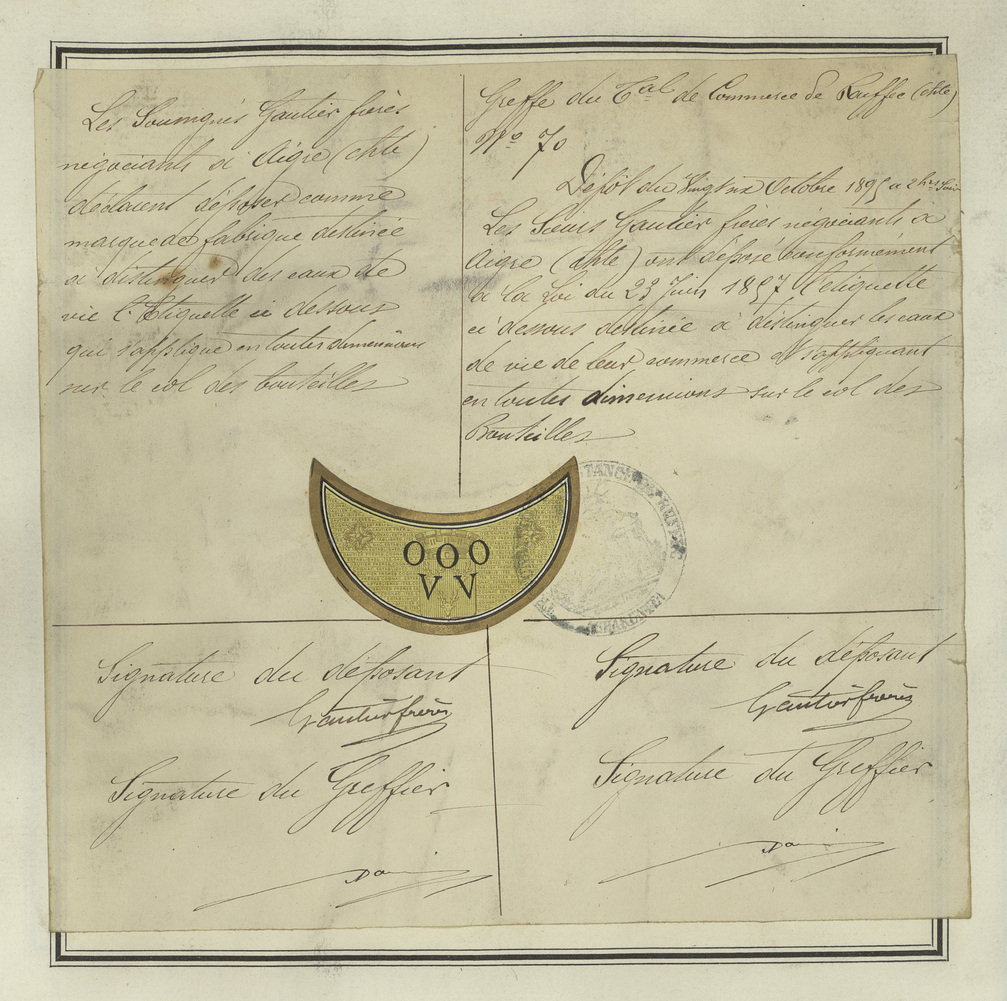 Les Soussignés Gautier frères
négociants à Aigre (chte)
déclarent déposer comme
marque de fabrique, destinée
à distinguer des eaux de
vie l'Etiquette ci dessous
qui s'applique en toutes dimensions
sur le col des bouteilles
Greffe du Tal de Commerce de Ruffec (chte)
No 70
Dépôt du Vingt six Octobre 1895 a 2 hrs Soir
Les Sieurs Gautier frères négociants à
Aigre (chte) ont déposé conformément
à la Loi du 23 Juin 1857 l'étiquette
ci dessous destinée à distinguer les eaux
de vie de leur commerce et s'appliquant
en toutes dimensions sur le col des
Bouteilles
OOO
VV
Signature du déposant
Gautier frères
Signature du Greffier
Signature du déposant
Gautier frères
Signature du Greffier